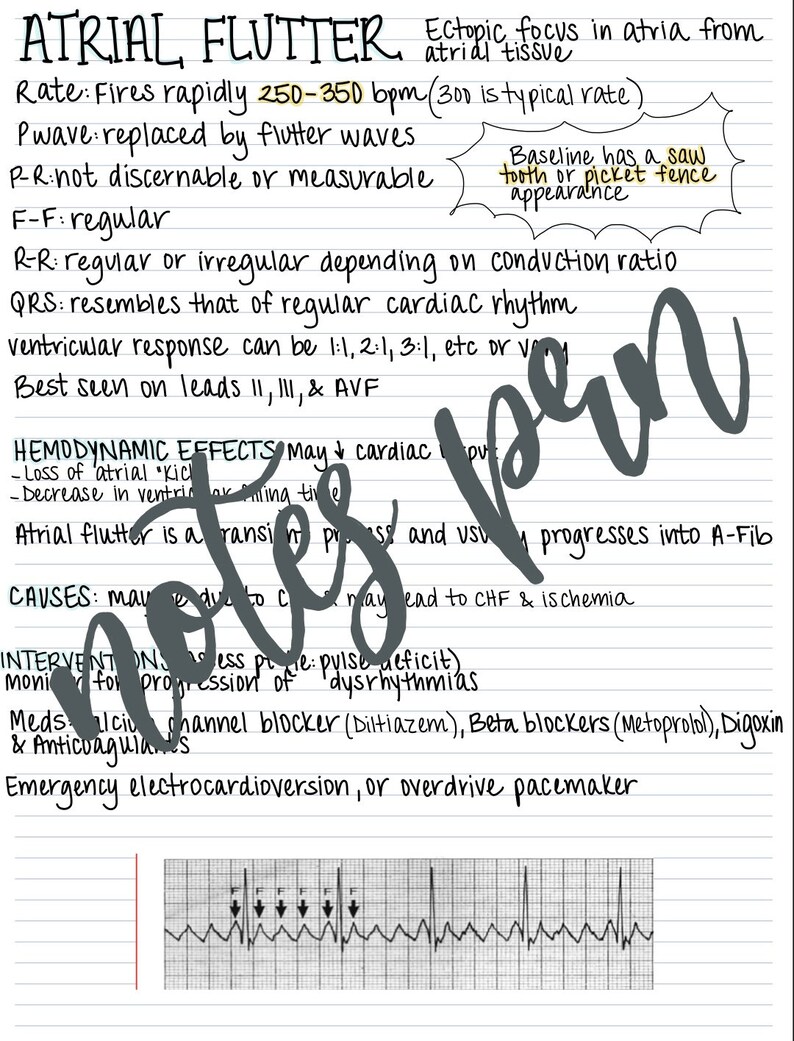 ATRIAL FLUTTER
Ectopic focus in atria from
atrial tissue
Rate: Fires rapidly 250-350 bpm (300 is typical rate)
Pwave: replaced by flutter waves
Baseline has a saw
tooth or picket fence
appearance
P-R: not discernable or measurable
F-F: regular
R-R: regular or irregular depending on conduction ratio
QRS: resembles that of regular cardiac rhythm
ventricular response can be 1:1, 2:1, 3:1, etc or vary
Best seen on leads II, III, & AVF
notes pen
HEMODYNAMIC EFFECTS May ↓ cardiac
- Loss of atrial "Kick
- Decrease in ventricular filling time
Atrial flutter is a transient process and usually progresses into A-Fib
CAUSES: may be due to may lead to CHF & ischemia
INTERVENTIONS assess pt (ie: pulse deficit)
monitor for progression of dysrhythmias
Meds: Calcium channel blocker (Diltiazem), Beta blockers (Metoprolol), Digoxin
& Anticoagulants
Emergency electrocardioversion, or overdrive pacemaker
F F F F F F